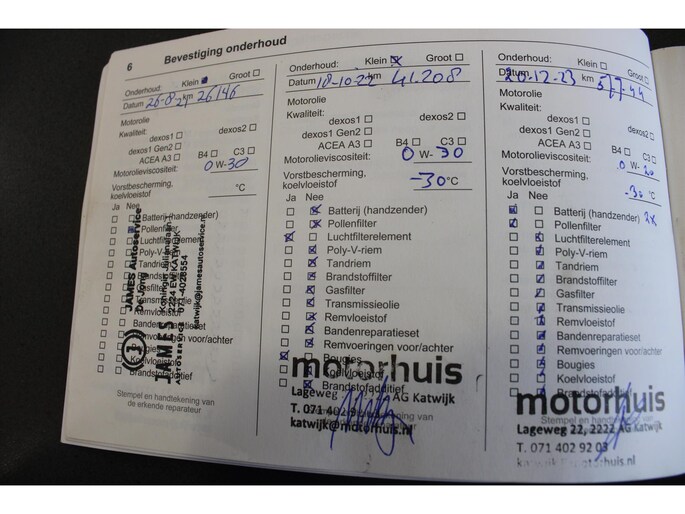 6
Bevestiging onderhoud
Onderhoud: Klein Groot
Datum 26-8-21 km 26146
Motorolie
Kwaliteit:
dexos1 dexos2
dexos1 Gen2
ACEA A3 B4 C3
Motorolieviscositeit: 0 W-30
Vorstbescherming, koelvloeistof °C
Ja Nee
Batterij (handzender)
Pollenfilter
Luchtfilterelement
Poly-V-riem
Tandriem
Brandstoffilter
Gasfilter
Transmissieolie
Remvloeistof
Bandenreparatieset
Remvoeringen voor/achter
Bougies
Koelvloeistof
Brandstofadditief
Stempel en handtekening van
de erkende reparateur
JAMES Autoservice
De Jong
2224 EW KATWIJK
071-4028554
katwijk@jamesautoservice.nl
JAMES
AUTOSERVICE
Onderhoud: Klein Groot
Datum 18-10-22 km 41.208
Motorolie
Kwaliteit:
dexos1 dexos2
dexos1 Gen2
ACEA A3 B4 C3
Motorolieviscositeit: 0 W-30
Vorstbescherming,
koelvloeistof -30 °C
Ja Nee
Batterij (handzender)
Pollenfilter
Luchtfilterelement
Poly-V-riem
Tandriem
Brandstoffilter
Gasfilter
Transmissieolie
Remvloeistof
Bandenreparatieset
Remvoeringen voor/achter
Bougies
Koelvloeistof
Brandstofadditief
motorhuis
Lageweg AG Katwijk
T. 071 402 9
katwijk@motorhuis.nl
Onderhoud: Klein Groot
Datum 20-12-23 km 57744
Motorolie
Kwaliteit:
dexos1 dexos2
dexos1 Gen2
ACEA A3 B4 C3
Motorolieviscositeit: 0 W-20
Vorstbescherming,
koelvloeistof -30 °C
Ja Nee
Batterij (handzender) 2x
Pollenfilter
Luchtfilterelement
Poly-V-riem
Tandriem
Brandstoffilter
Gasfilter
Transmissieolie
Remvloeistof
Bandenreparatieset
Remvoeringen voor/achter
Bougies
Koelvloeistof
Brandstofadditief
motorhuis
Lageweg 22, 2222 AG Katwijk
T. 071 402 92 03